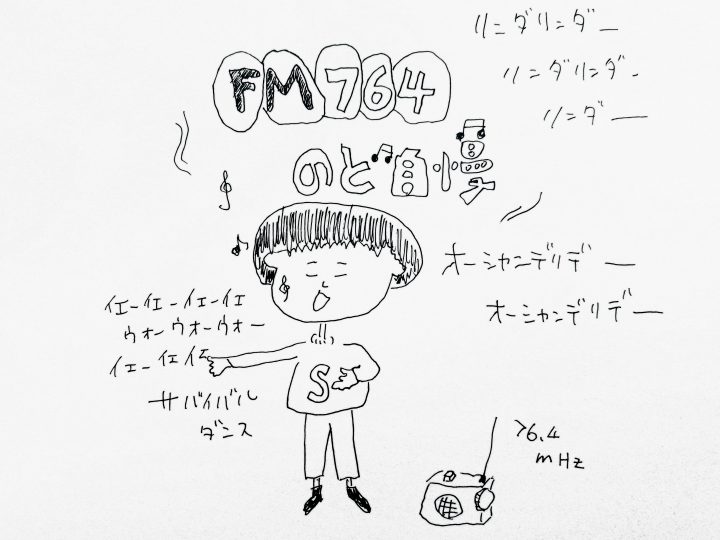 リンダリンダー
FM764
リンダリンダー
リンダー
のど自慢
オーシャンデリデー
オーシャンデリデー
イエーイエーイエーイエ
ウォーウォーウォー
イェーイェイェ
S
サバイバル
ダンス
76.4
mHz